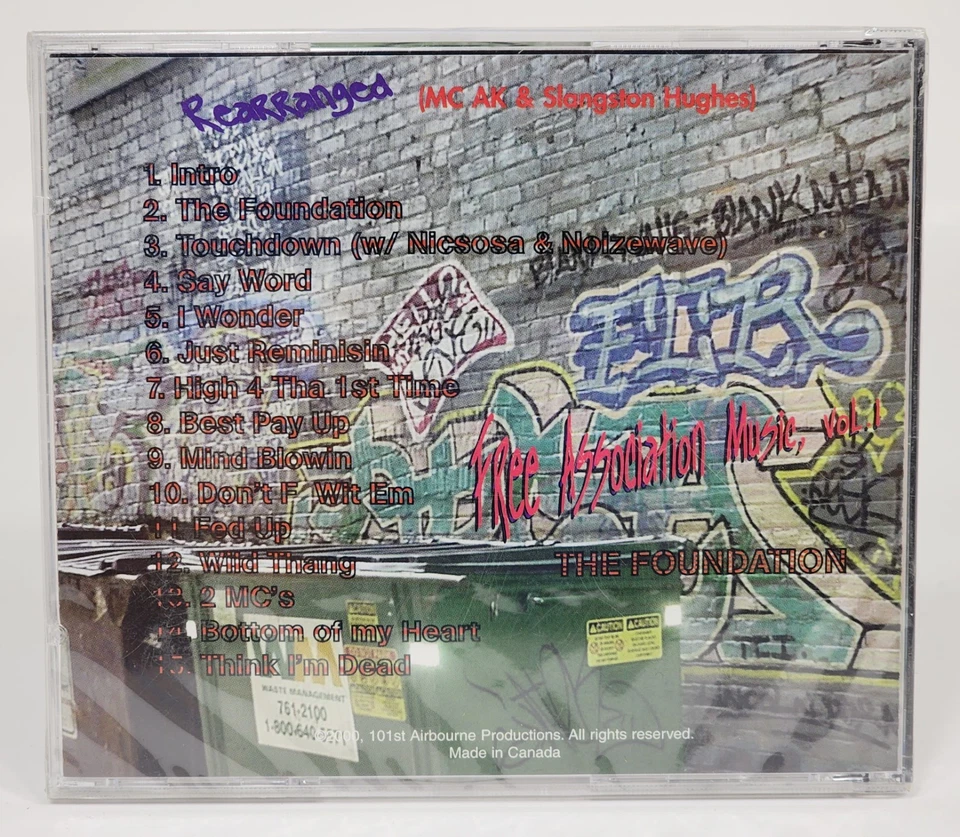 Rearranged (MC AK & Slangston Hughes)
1. Intro
2. The Foundation
3. Touchdown (w/ Nicsosa & Noizewave)
4. Say Word
5. I Wonder
6. Just Reminisin
7. High 4 Tha 1st Time
8. Best Pay Up
9. Mind Blowin
10. Don't F_Wit Em
11. Fed Up
12. Wild Thang
13. 2 MC's
14. Bottom of my Heart
15. Think I'm Dead
Free Association Music, vol. 1
THE FOUNDATION
CAUTION CAUTION
WASTE MANAGEMENT
761-2100
1-800-640
©2000, 101st Airbourne Productions. All rights reserved.
Made in Canada